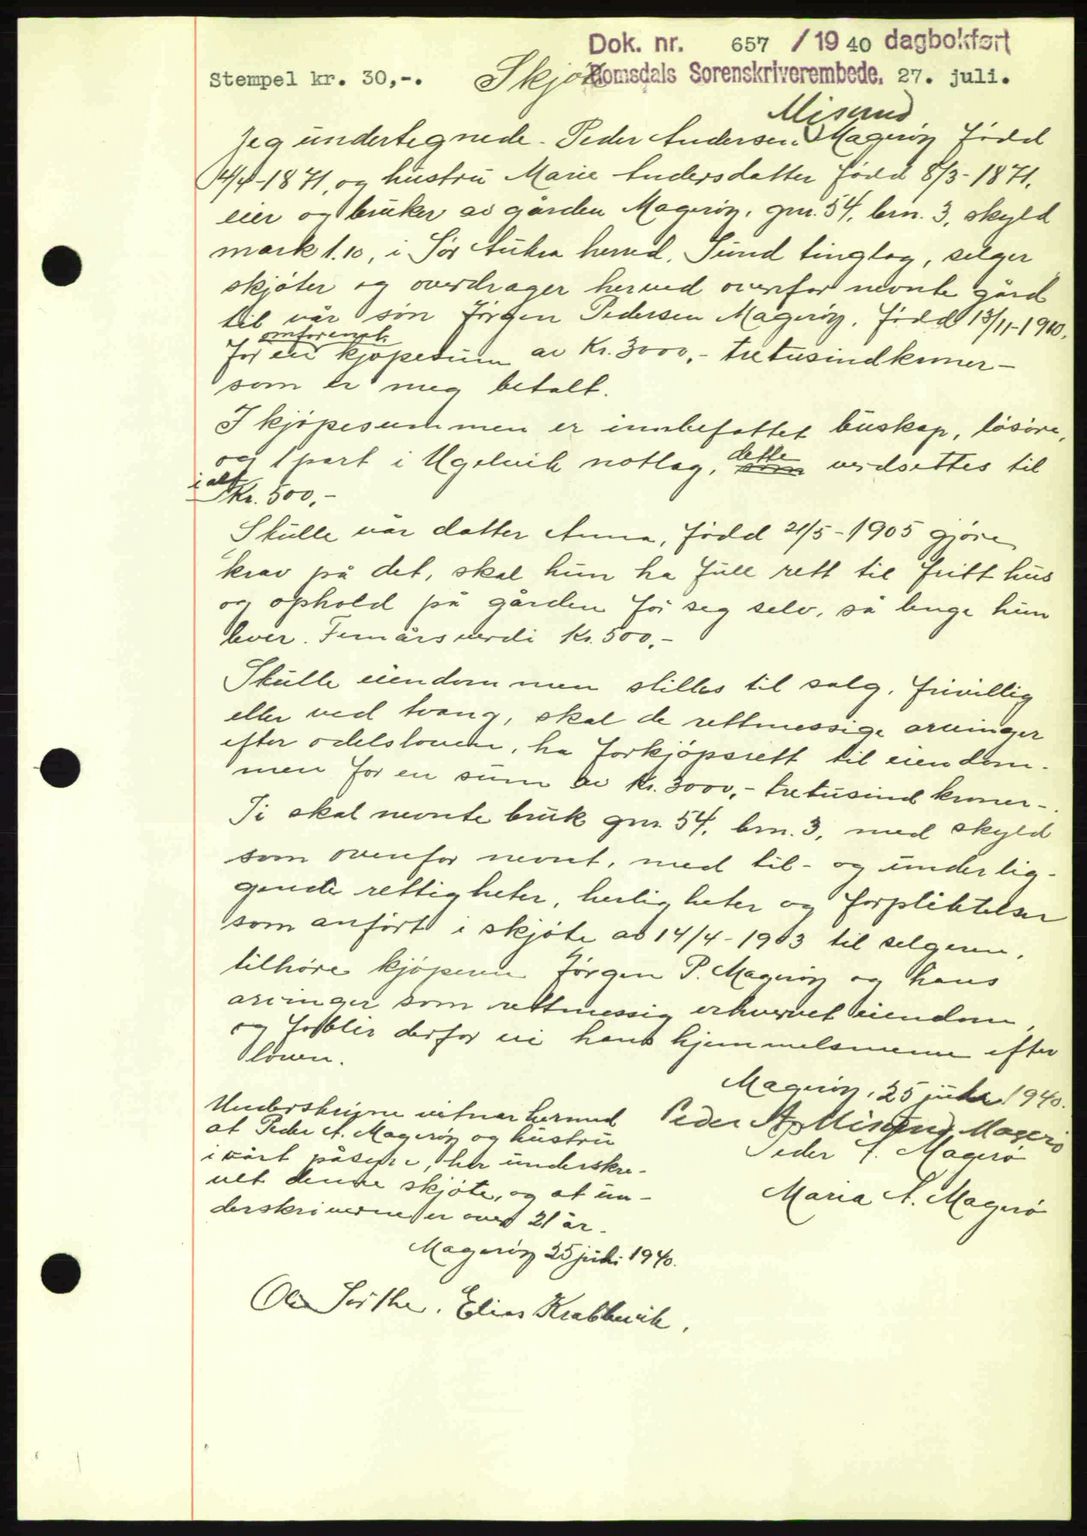 Dok. nr. 657 / 19 40 dagbokført
Stempel kr. 30,-. Skjøte Romsdals Sorenskriverembede. 27. juli.
Misund
Jeg undertegnede Peder Andersen Magerøy født
4/4-1871, og hustru Marie Andersdatter født 8/3-1871,
eier og bruker av gården Magerøy, gnr. 54, brn. 3, skyld
mark 1.10, i Sør Aukra herred, Sund tinglag, selger
skjøter og overdrager herved ovenfor nevnte gård
til vår søn Jørgen Pedersen Magerøy, født 13/11-1910,
omforenet
for en kjøpesum av Kr. 3000,- tretusindkroner-
som er meg betalt.
I kjøpesummen er innbefattet buskap, løsøre,
og 1 part i Ugelvik notlag, dette som verdsettes til
i alt Kr. 500,-
Skulle vår datter Anna, født 21/5-1905 gjøre
krav på det, skal hun ha full rett til fritt hus
og ophold på gården for seg selv, så lenge hun
lever. Femårsverdi Kr. 500,-
Skulle eiendommen stilles til salg, frivillig
eller ved tvang, skal de rettmessige arvinger
efter odelsloven, ha forkjøpsrett til eiendom-
men for en sum av Kr. 3000,- tretusind kroner-.
Ti skal nevnte bruk gnr. 54, brn. 3, med skyld
som ovenfor nevnt, med til- og underlig-
gende rettigheter, herligheter og forpliktelser
som anført i skjøte av 14/4-1903 til selgeren,
tilhøre kjøperen Jørgen P. Magerøy og hans
arvinger som rettmessig erhvervet eiendom,
og forblir derfor vi hans hjemmelsmenn efter
loven.
Magerøy, 25 juli 1940.
Peder A. Misund Magerø
Peder A. Magerø
Maria A. Magerø
Underskrivne vitner herved
at Peder A. Magerøy og hustru
i vårt påsyn, har underskre-
vet denne skjøte, og at un-
derskriverne er over 21 år.
Magerøy 25 juli 1940.
Elias Krabbevik,